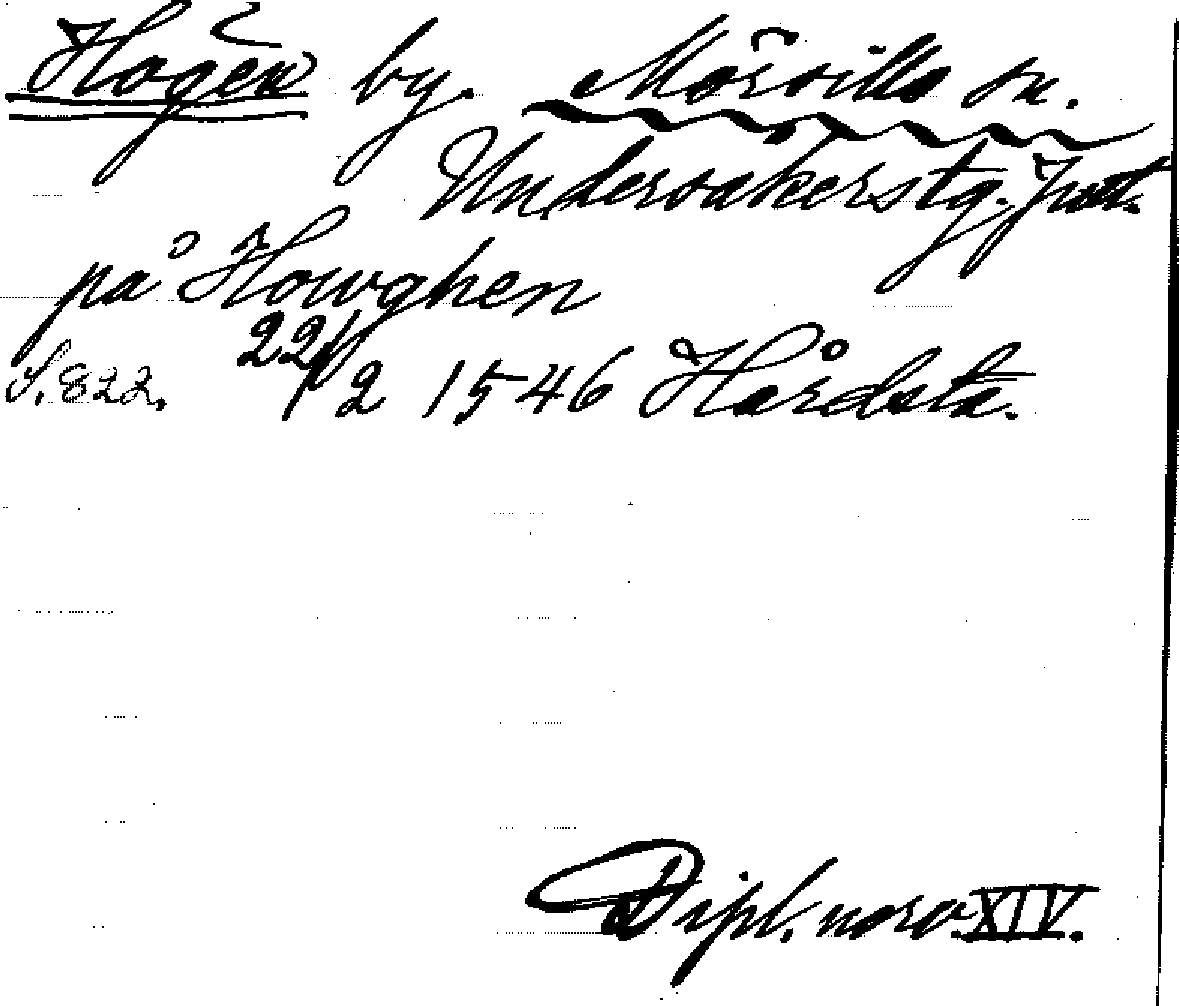 Hogen by. Mörsills sn.
Undersåkerstg. Jmtl.
på Howghen
S. 822. 22/2 1546 Hårdsta.
Dipl. norv. XIV.